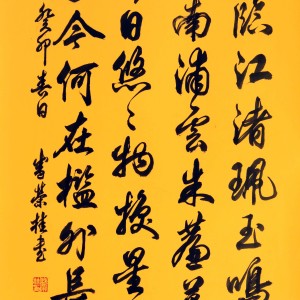 臨江渚珮玉鳴
南浦雲朱簾
日悠々物換星
今何在檻外長
癸卯春日
李榮桂書